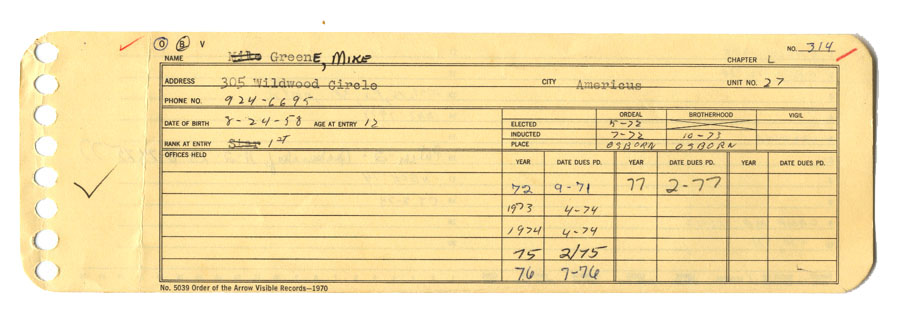 O B V
NAME Mike GreenE, MIKE NO. 314
CHAPTER L
ADDRESS 305 Wildwood Circle CITY Americus UNIT NO. 27
PHONE NO. 924-6695
DATE OF BIRTH 8-24-58 AGE AT ENTRY 12
RANK AT ENTRY Star 1st
ORDEAL BROTHERHOOD VIGIL
ELECTED 5-72
INDUCTED 7-72 10-73
PLACE OSBORN OSBORN
OFFICES HELD
YEAR DATE DUES PD. YEAR DATE DUES PD. YEAR DATE DUES PD.
72 9-71 77 2-77
1973 4-74
1974 4-74
75 2/75
76 7-76
No. 5039 Order of the Arrow Visible Records—1970